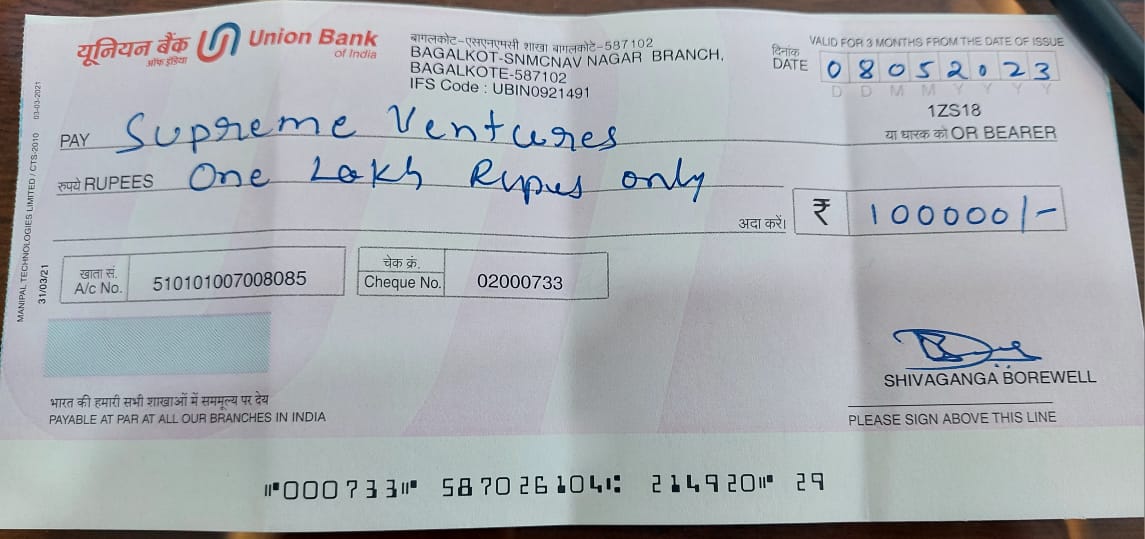 यूनियन बैंक Union Bank
ऑफ इंडिया of India
बागलकोट-एसएनएमसी शाखा बागलकोटे-587102
BAGALKOT-SNMCNAV NAGAR BRANCH,
BAGALKOTE-587102
IFS Code : UBIN0921491
VALID FOR 3 MONTHS FROM THE DATE OF ISSUE
दिनांक
DATE 08052023
D D M M Y Y Y Y
1ZS18
PAY Supreme Ventures
या धारक को OR BEARER
रुपये RUPEES One Lakh Rupes only
अदा करें। ₹ 100000/-
खाता सं.
A/c No. 510101007008085
चेक क्रं.
Cheque No. 02000733
MANIPAL TECHNOLOGIES LIMITED / CTS-2010 03-03-2021
31/03/21
SHIVAGANGA BOREWELL
भारत की हमारी सभी शाखाओं में सममूल्य पर देय
PAYABLE AT PAR AT ALL OUR BRANCHES IN INDIA
PLEASE SIGN ABOVE THIS LINE
⑈000733⑈ 587026104⑆ 214920⑈ 29